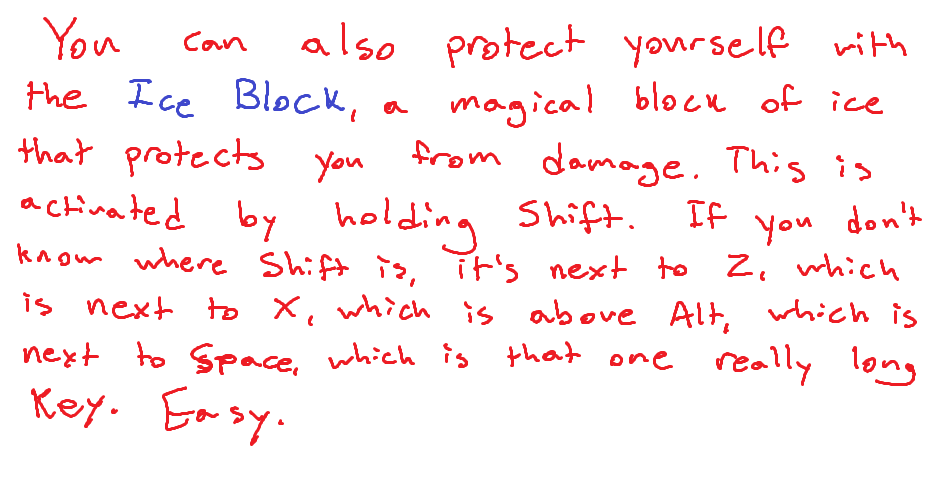 You can also protect yourself with
the Ice Block, a magical block of ice
that protects you from damage. This is
activated by holding Shift. If you don't
know where Shift is, it's next to Z, which
is next to X, which is above Alt, which is
next to Space, which is that one really long
Key. Easy.